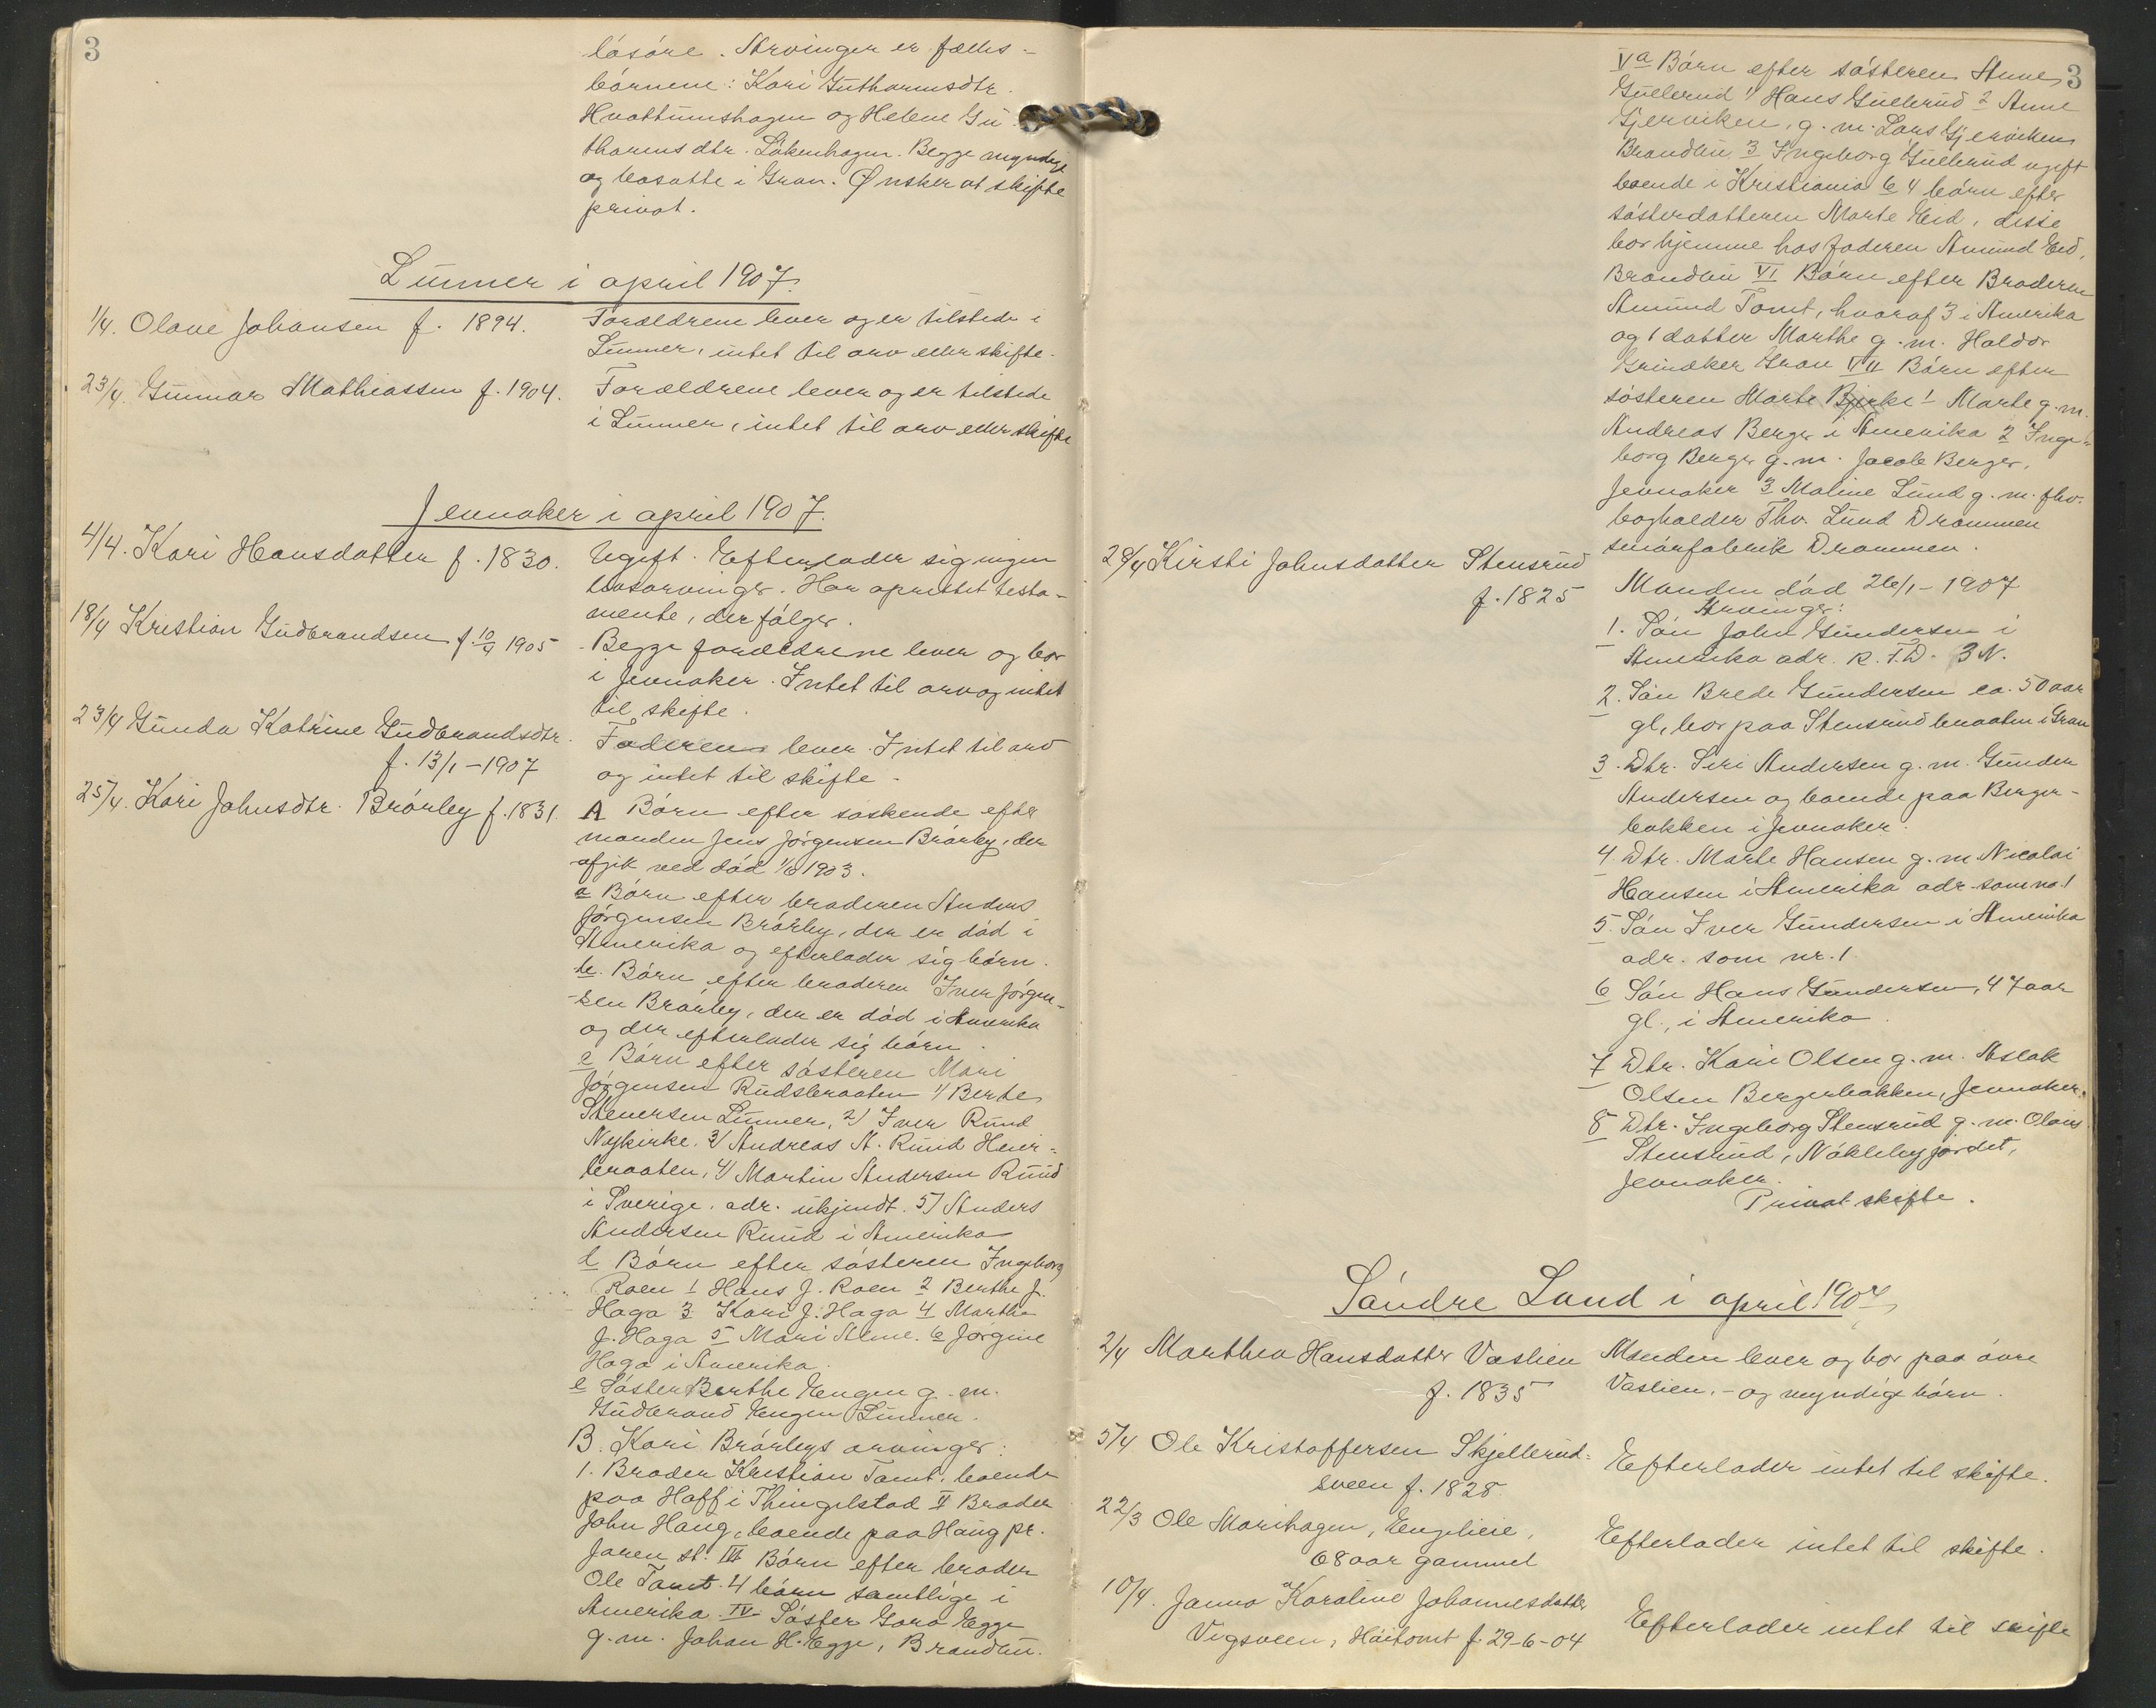 3
lösöre. Arvinger er fælles-
börnene: Kari Guthormsdtr.
Hvattumshagen og Helene Gu-
thorms dtr. Lökenhagen. Begge myndige
og bosatte i Gran. Ønsker at skifte
privat.
Lunner i april 1907.
1/4. Olave Johansen f. 1894.
Forældrene lever og er tilstede i
Lunner, intet til arv eller skifte.
23/4. Gunnar Mathiassen f. 1904.
Forældrene lever og er tilstede
i Lunner, intet til arv eller skifte
Jevnaker i april 1907.
4/4. Kari Hansdatter f. 1830.
Ugift. Efterlader sig ingen
livsarvinger. Har oprettet testa-
mente, der fölger.
18/4 Kristian Gudbrandsen f. 10/9 1905
Begge forældrene lever og bor
i Jevnaker. Intet til arv og intet
til skifte.
23/4 Gunda Katrine Gudbrandsdtr.
f. 13/1-1907
Faderen lever. Intet til arv
og intet til skifte.
25/4. Kari Johnsdtr. Brörby f. 1831.
A Börn efter söskende efter
manden Jens Jörgensen Brörby, der
afgik ved död 1903.
a Börn efter broderen Anders
Jörgensen Brörby, der er död i
Amerika og efterlader sig börn.
b. Börn efter broderen Iver Jörgen-
sen Brörby, der er död i Amerika
og der efterlader sig börn.
c Börn efter sösteren Mari
Jörgensen Rudsbraaten 1/ Berte
Stenersen Lunner, 2/ Iver Ruud
Nykirke. 3/ Andreas A. Ruud Heier-
braaten, 4/ Martin Andersen Ruud
i Sverige. adr. ukjendt. 5/ Anders
Andersen Ruud i Amerika
d Börn efter sösteren Ingeborg
Roen 1 Hans J. Roen 2 Berthe J.
Haga 3 Kari J. Haga 4 Marthe
J. Haga 5 Mari Alme. 6 Jörgine
Haga i Amerika.
e Söster Berthe Engen g. m.
Gudbrand Engen Lunner.
B. Kari Brörbys arvinger:
1. Broder Kristian Tomt, boende
paa Hoff i Thingelstad II Broder
John Haug, boende paa Haug pr.
Jaren st. III Börn efter broder
Ole Tomt. 4 börn samtlige i
Amerika. IV Söster Goro Egge
g. m. Johan H. Egge, Brandbu.
3
Va Börn efter sösteren Anne
Gullerud 1 Hans Gullerud 2 Anne
Gjerviken, g. m. Lars Gjerviken
Brandbu. 3 Ingeborg Gullerud ugift
boende i Kristiania b 4 börn efter
sösterdatteren Marte Eid, disse
bor hjemme hos faderen Amund Eid,
Brandbu VI Börn efter Broderen
Amund Tomt, hvoraf 3 i Amerika
og 1 datter Marthe g. m. Haldor
Grinaker Gran VII Börn efter
sösteren Marte Bjerke 1 Marte g. m.
Andreas Berger i Amerika 2 Inge-
borg Berger g. m. Jacob Berger,
Jevnaker 3 Maline Lund g. m. fhv.
bogholder Thv. Lund Drammen
smörfabrik Drammen.
28/4 Kirsti Johnsdatter Stensrud
f. 1825
Manden död 26/1-1907
Arvinger:
1. Sön John Gundersen i
Amerika adr. R. F. D. 3 N.
2. Sön Brede Gundersen ca. 50 aar
gl, bor paa Stensrudbraaten i Gran
3. Dtr. Siri Andersen g. m. Gunder
Andersen og boende paa Berger-
bakken i Jevnaker.
4. Dtr. Marte Hansen g. m. Nicolai
Hansen i Amerika adr. som no. 1
5. Sön Iver Gundersen i Amerika
adr. som nr. 1.
6 Sön Hans Gundersen, 47 aar
gl., i Amerika.
7 Dtr. Kari Olsen g. m. Aslak
Olsen Bergerbakken, Jevnaker.
8 Dtr. Ingeborg Stensrud g. m. Olaus
Stensrud, Nöklebyjordet,
Jevnaker.
Privat skifte.
Söndre Land i april 1907
2/4 Marthea Hansdatter Vaslien
f. 1835
Manden lever og bor paa övre
Vaslien, - og myndige börn.
5/4 Ole Kristoffersen Skjellerud-
sveen f. 1828.
Efterlader intet til skifte.
22/3 Ole Marihagen, Englieie,
68 aar gammel
Efterlader intet til skifte.
10/4. Janna Karoline Johannesdatter
Vigsveen, Höitomt f. 29-6-04
Efterlader intet til skifte